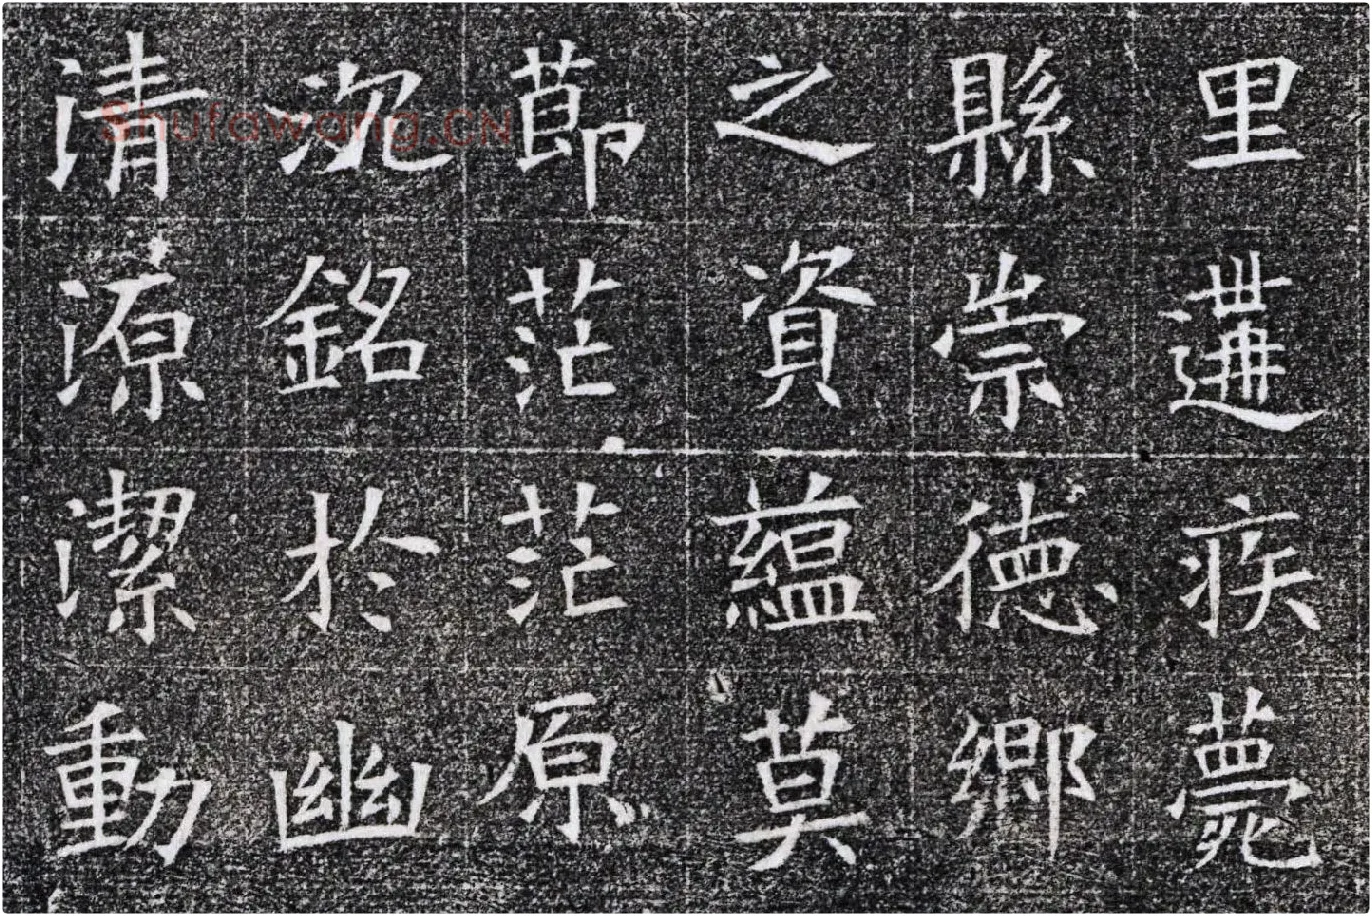 里遘疾薨
縣崇德鄉
之資蘊莫
節茫茫原
沉銘於幽
清源潔動
Shufawang.CN